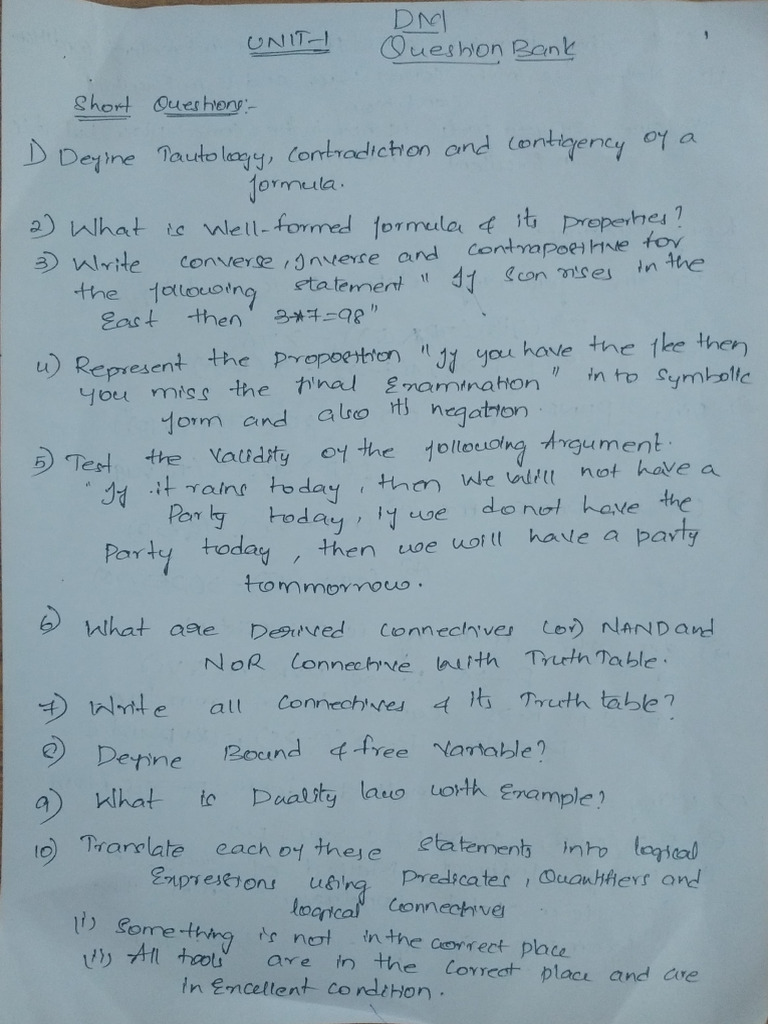 DM
UNIT-1 Question Bank
Short Questions:-
1) Define Tautology, Contradiction and Contigency of a
formula.
2) What is Well-formed formula & its Properties?
3) Write converse, Inverse and contrapositive for
the following statement "If Scon rises in the
East then 3*7=98"
4) Represent the Proposition "If you have the flee then
you miss the final Examination" in to symbolic
form and also its negation.
5) Test the Validity of the following Argument.
"If it rains today, then We Will not have a
Party today, if we do not have the
Party today, then we will have a party
tommornow.
6) What are Derived Connectives (or) NAND and
NOR Connective With Truth Table.
7) Write all Connectives & its Truth table?
8) Define Bound & free Variable?
9) What is Duality law with Example?
10) Translate each of these statements into logical
Expressions using Predicates, Quantifiers and
logical Connectives
(i) Something is not in the correct place
(ii) All tools are in the Correct place and are
in Excellent condition.